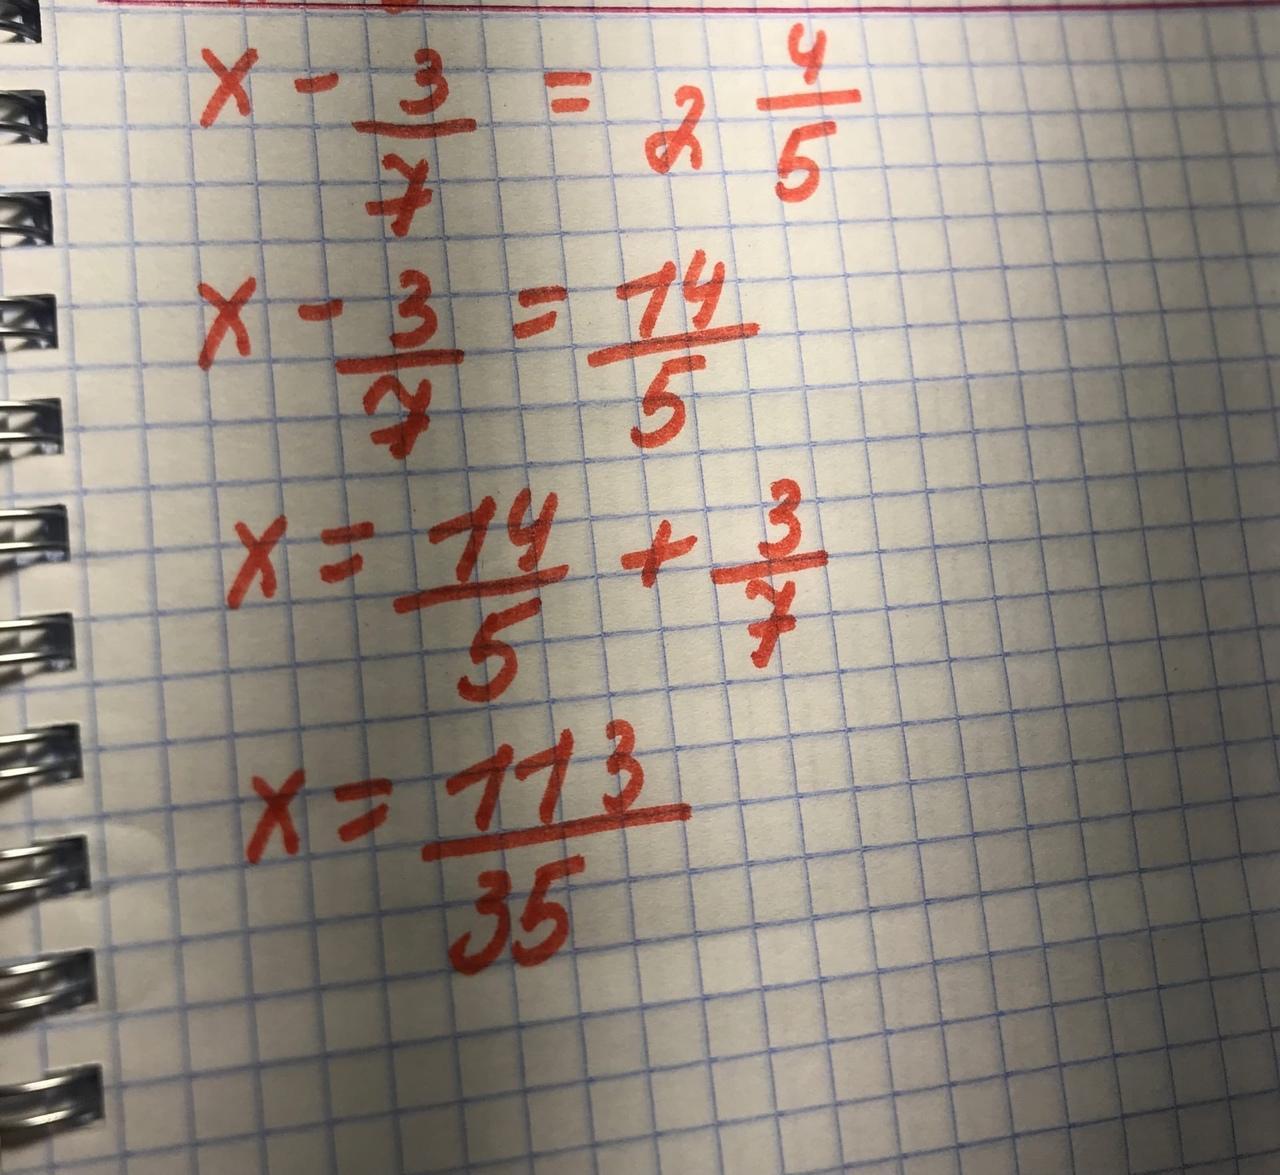 x - 3/7 = 2 4/5
x - 3/7 = 14/5
x = 14/5 + 3/7
x = 113/35